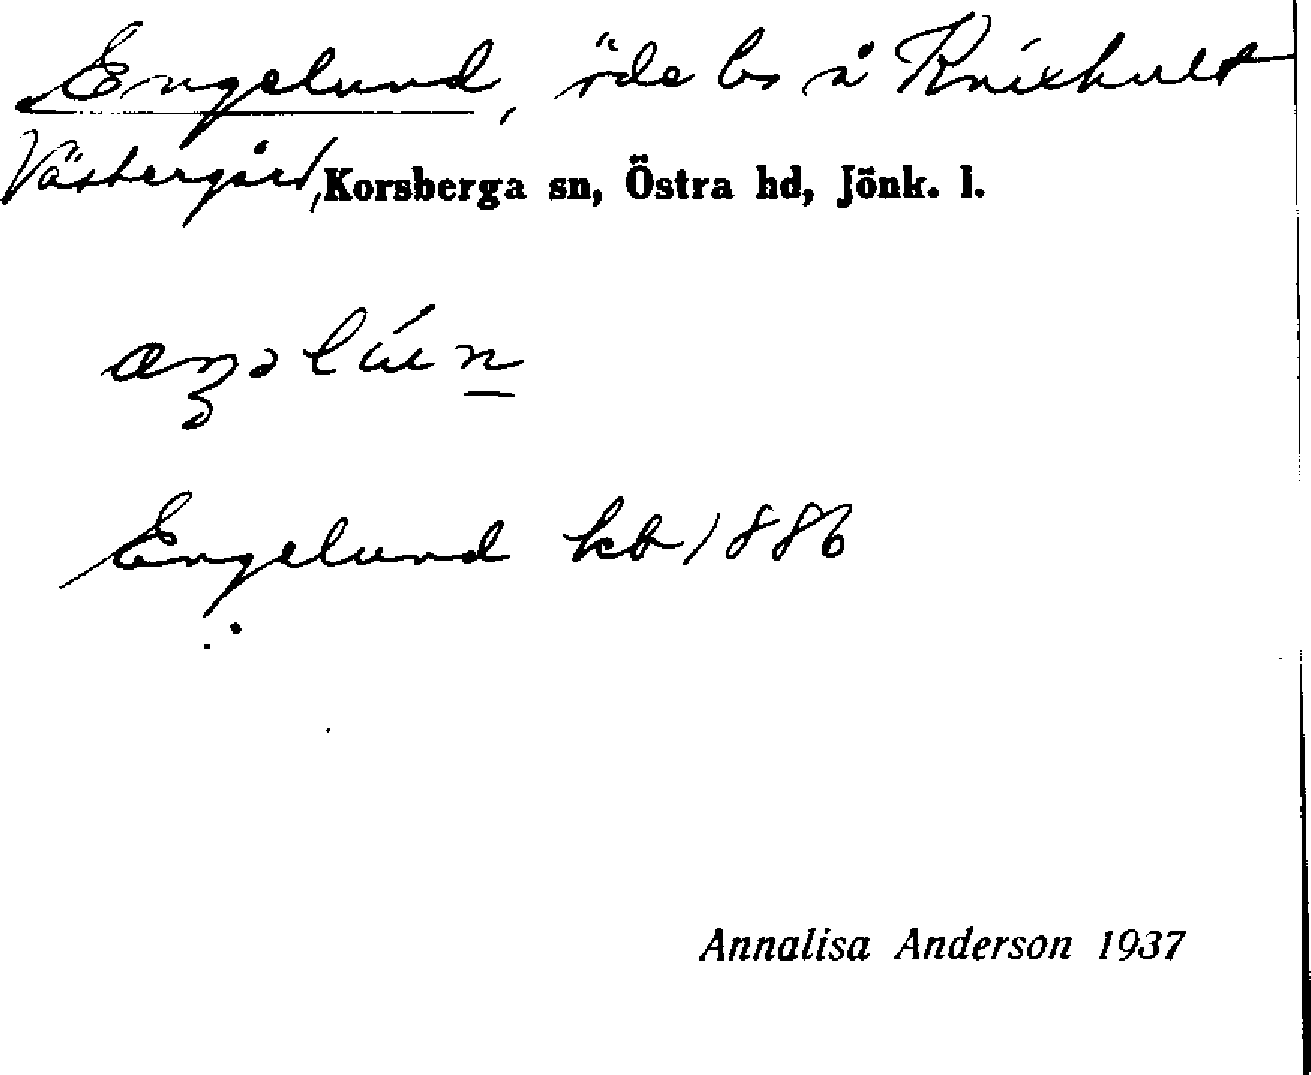 Engelund, öde bs å Knixhult
Västergård, Korsberga sn, Östra hd, Jönk. l.
Engelund kb 1886
Annalisa Anderson 1937